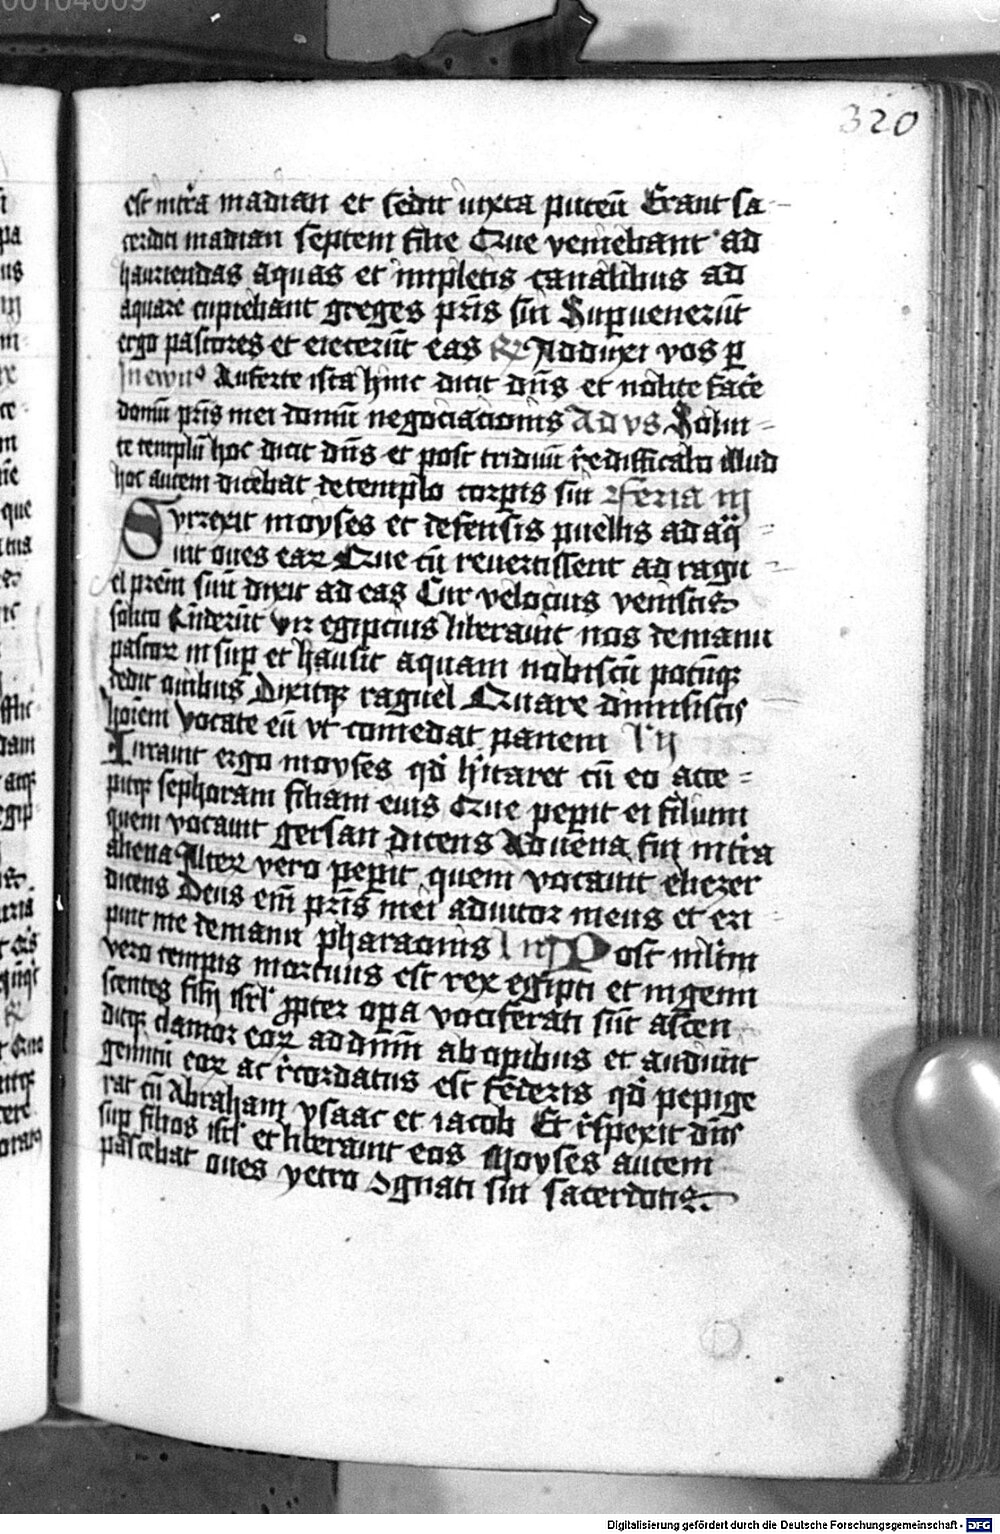 00104009
320
est int̄ra madian et sedit iuxta puteū Erant sa-
cerdoti madian septem filie Que veniebant ad
hauriendas aquas et impletis canalibus ad
aquare cupiebant greges pr̄is sui Supuenerūt
ergo pastores et eiecerūt eas R Adduxi vos p
In ewn͛ Auferte ista hinc dicit dn̄s et nolite face
domū pr̄is mei domū negociacionis Ad vs Solui-
te templū hoc dicit dn̄s et post triduū reedificabo illud
hoc autem dicebat de templo corpis sui Feria iij
Surrexit moyses et defensis puellis adaq-
uit oues eaꝝ Que cū reuertissent ad ragu-
el prēm suū dixit ad eas Cur velocius venistis
solito Rn̄derūt vir egipcius liberauit nos de manu
pastoꝝ insup et hausit aquam nobiscū potūqꝫ
dedit ouibus Dixitqꝫ raguel Quare dimisistis
hoīem vocate eū vt comedat panem l' ij
Iurauit ergo moyses qd̄ h'itaret cū eo acce-
pitqꝫ sephoram filiam eius Que pepit ei filium
quem vocauit gersan dicens Aduena fui in t̄ra
aliena Alter vero pepit quem vocauit eliezer
dicens Deus em̄ pr̄is mei adiutor meus et eri-
puit me de manu pharaonis l iij Post mltm
vero tempis mortuus est rex egipti et ingemi
scentes filij isrl' ꝓpter opa vociferati sūt ascen
ditqꝫ clamor eoꝝ ad dnm̄ ab opibus et audiuit
gemitū eoꝝ ac rcordatus est federis qd̄ pepige
rat cū Abraham ysaac et iacob Et respexit dn̄s
sup filios isrl' et liberauit eos Moyses autem
pascebat oues yetro ɔgnati sui sacerdotis
Digitalisierung gefördert durch die Deutsche Forschungsgemeinschaft - DFG